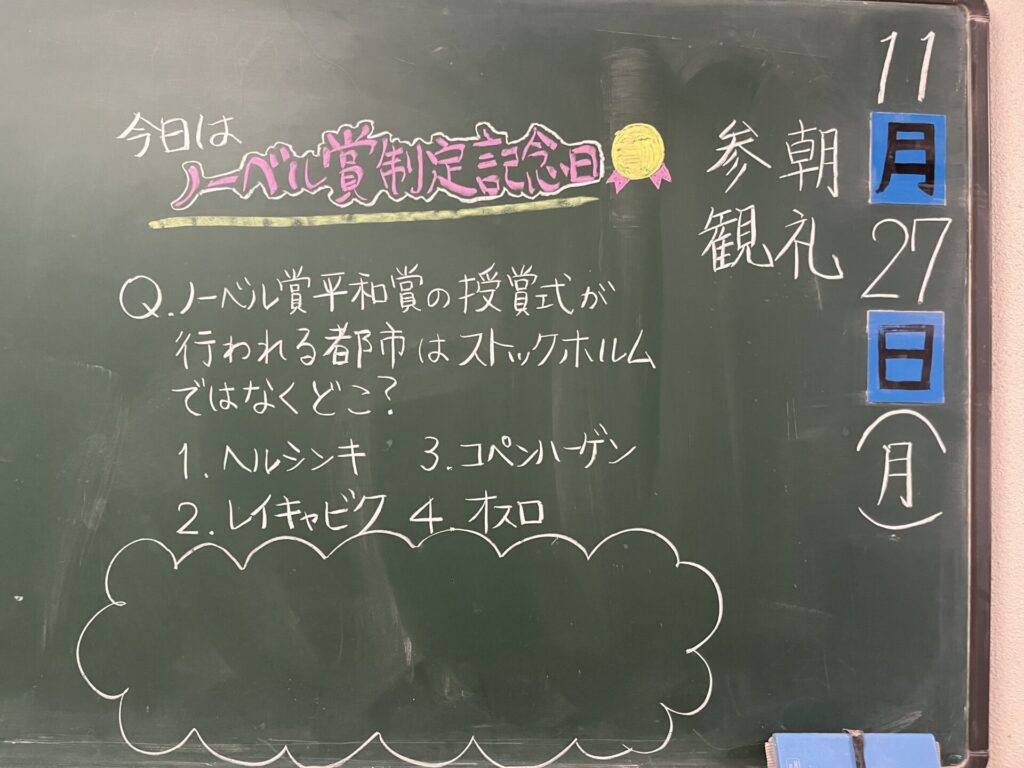 11
月
27
日
(月)
朝礼
参観
今日は
ノーベル賞制定記念日
Q.ノーベル賞平和賞の授賞式が
行われる都市はストックホルム
ではなくどこ?
1.ヘルシンキ 3.コペンハーゲン
2.レイキャビク 4.オスロ